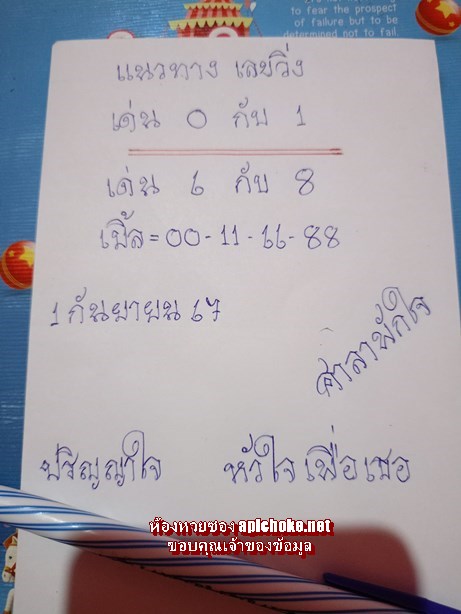 to fear the prospect
of failure but to be
determined not to fail.
แนวทาง เลขวิ่ง
เด่น 0 กับ 1
เด่น 6 กับ 8
เบิ้ล = 00 - 11 - 66 - 88
1 กันยายน 67
ศาลาพักใจ
ปริญญาใจ
หัวใจเพื่อเธอ
ห้องหวยซอง apichoke.net
ขอบคุณเจ้าของข้อมูล